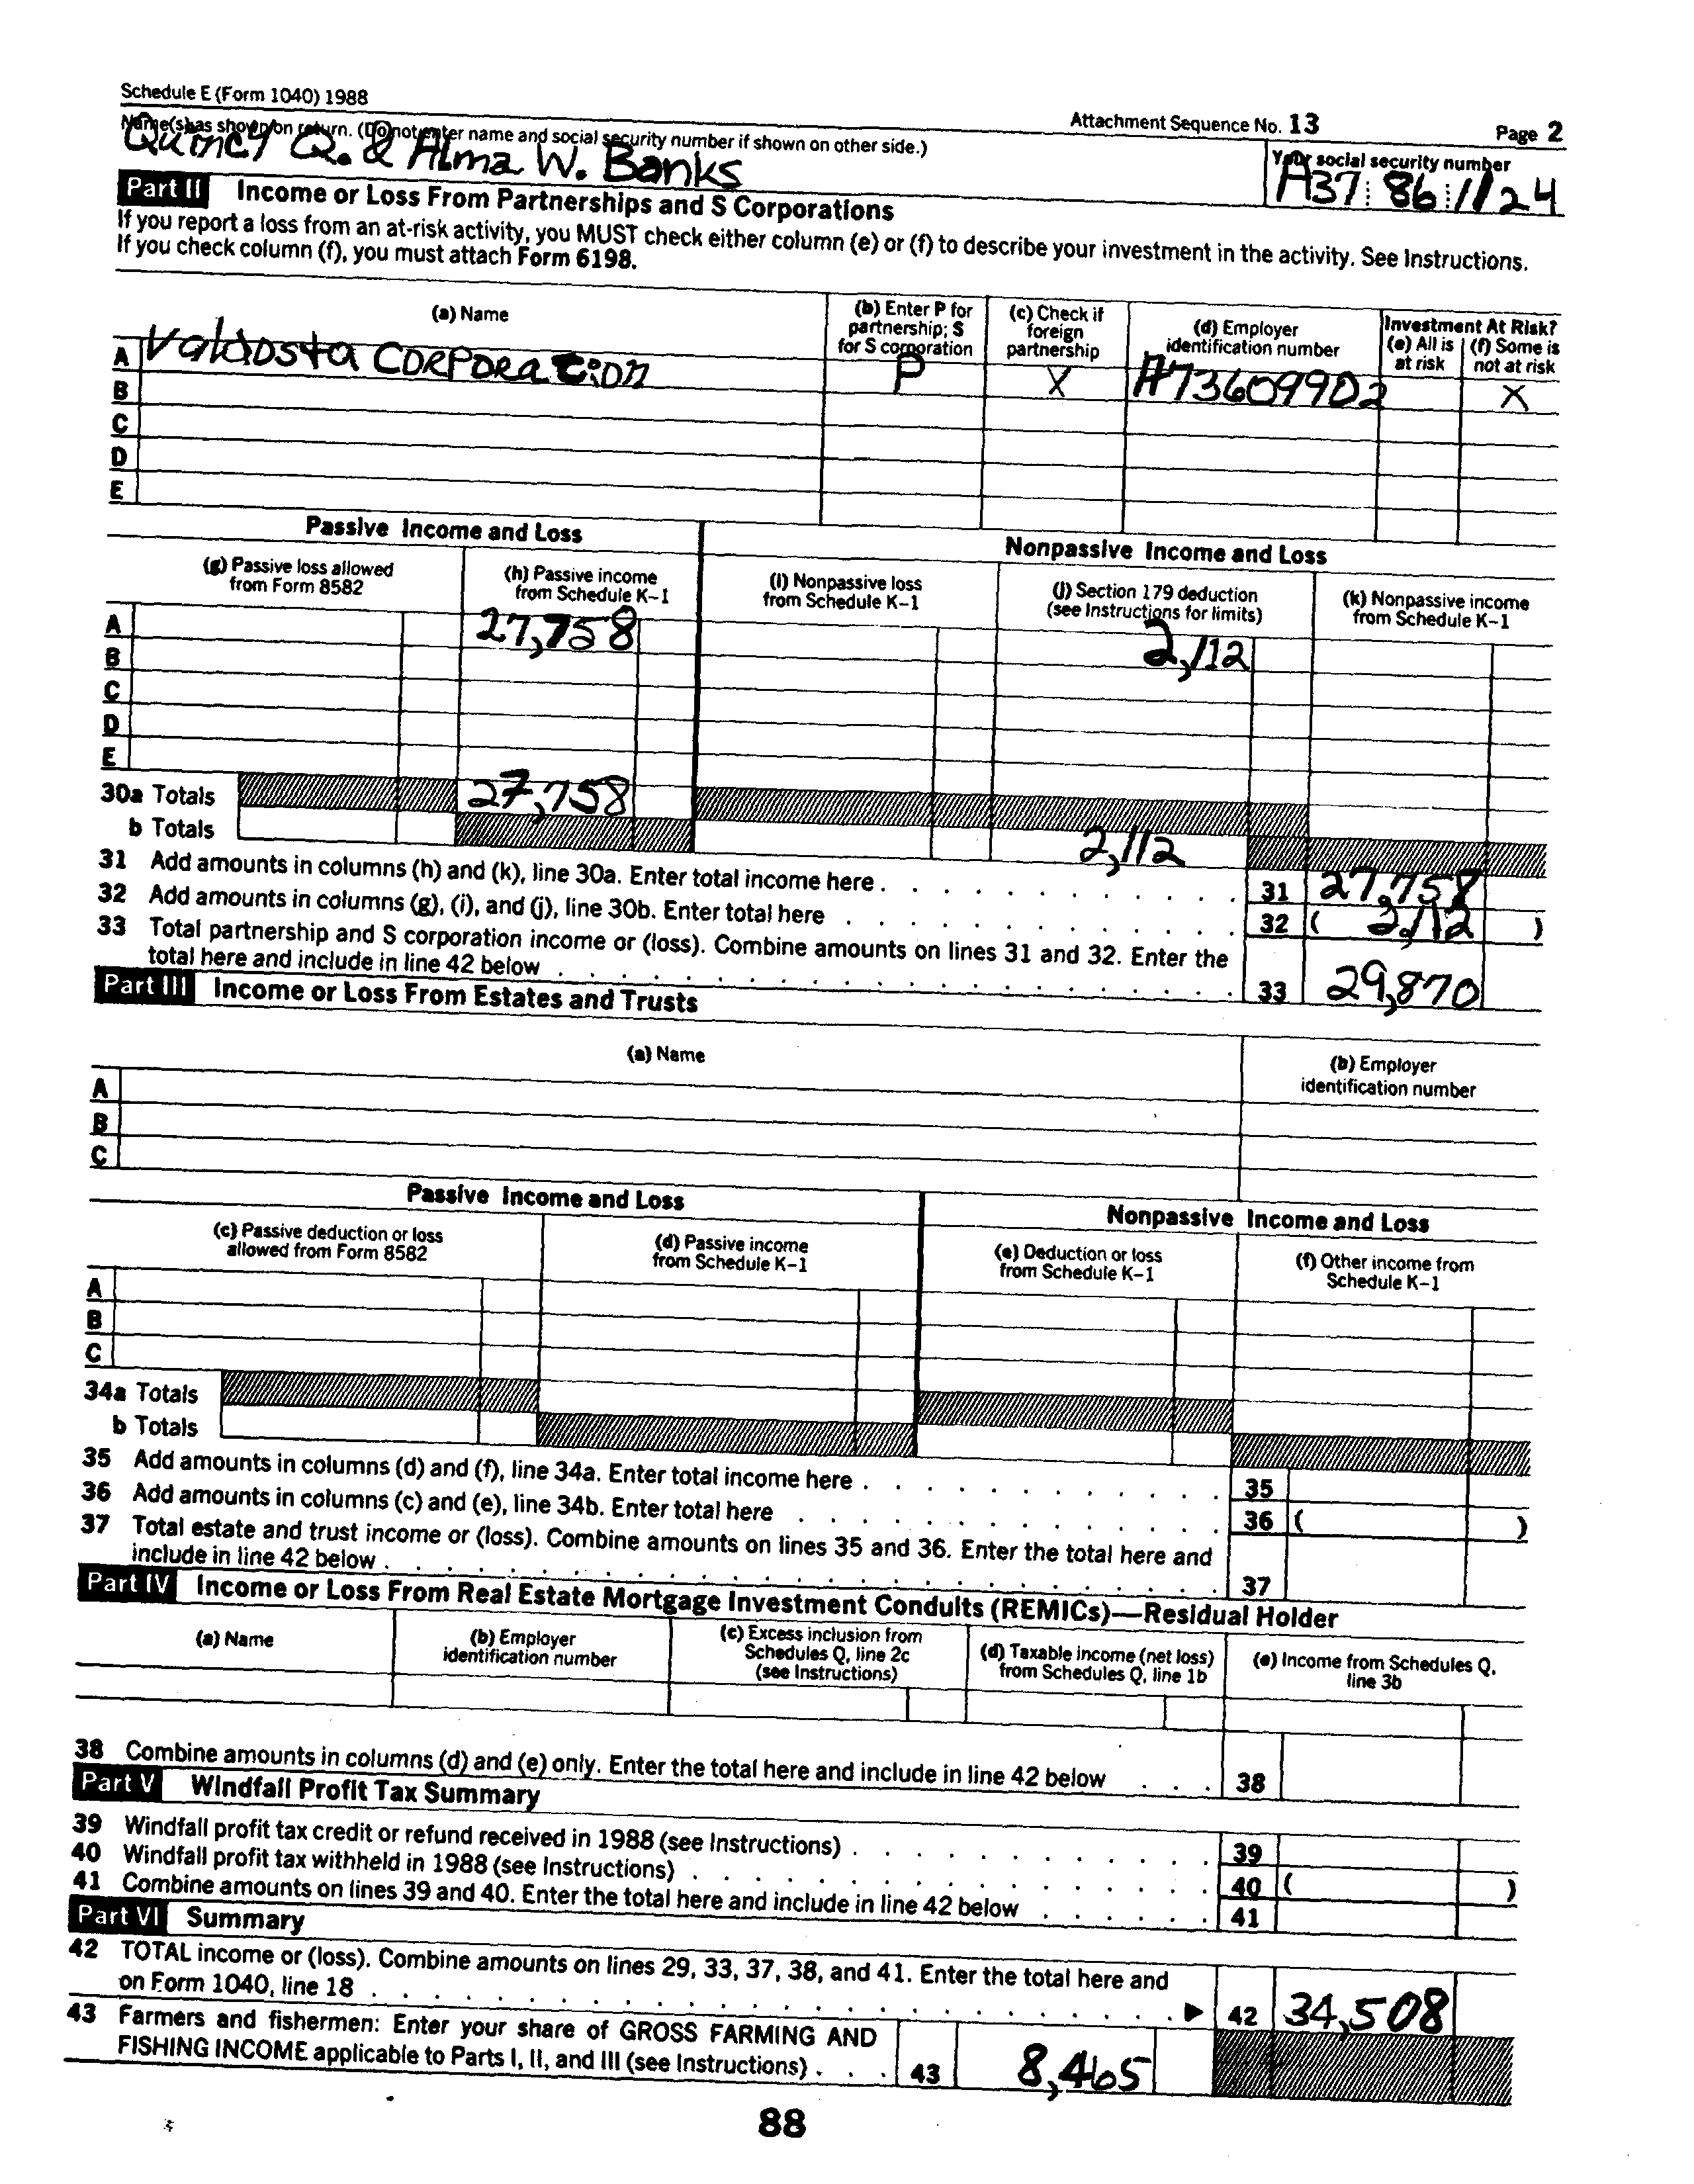 Schedule E (Form 1040) 1988
Attachment Sequence No. 13 Page 2
Name(s) as shown on return. (Do not enter name and social security number if shown on other side.) Your social security number
Quincy Q. & Alma W. Banks A37 86 1124
Part II Income or Loss From Partnerships and S Corporations
If you report a loss from an at-risk activity, you MUST check either column (e) or (f) to describe your investment in the activity. See Instructions.
If you check column (f), you must attach Form 6198.
(a) Name (b) Enter P for partnership; S for S corporation (c) Check if foreign partnership (d) Employer identification number Investment At Risk? (e) All is at risk (f) Some is not at risk
A Valdosta Corporation P X A73609902 X
B
C
D
E
Passive Income and Loss Nonpassive Income and Loss
(g) Passive loss allowed from Form 8582 (h) Passive income from Schedule K-1 (i) Nonpassive loss from Schedule K-1 (j) Section 179 deduction (see Instructions for limits) (k) Nonpassive income from Schedule K-1
A 27,758 2,112
B
C
D
E
30a Totals 27,758
b Totals 2,112
31 Add amounts in columns (h) and (k), line 30a. Enter total income here . 31 27,758
32 Add amounts in columns (g), (i), and (j), line 30b. Enter total here . 32 ( 2,112 )
33 Total partnership and S corporation income or (loss). Combine amounts on lines 31 and 32. Enter the
total here and include in line 42 below . 33 29,870
Part III Income or Loss From Estates and Trusts
(a) Name (b) Employer identification number
A
B
C
Passive Income and Loss Nonpassive Income and Loss
(c) Passive deduction or loss allowed from Form 8582 (d) Passive income from Schedule K-1 (e) Deduction or loss from Schedule K-1 (f) Other income from Schedule K-1
A
B
C
34a Totals
b Totals
35 Add amounts in columns (d) and (f), line 34a. Enter total income here . 35
36 Add amounts in columns (c) and (e), line 34b. Enter total here . 36 ( )
37 Total estate and trust income or (loss). Combine amounts on lines 35 and 36. Enter the total here and
include in line 42 below . 37
Part IV Income or Loss From Real Estate Mortgage Investment Conduits (REMICs)—Residual Holder
(a) Name (b) Employer identification number (c) Excess inclusion from Schedules Q, line 2c (see Instructions) (d) Taxable income (net loss) from Schedules Q, line 1b (e) Income from Schedules Q, line 3b
38 Combine amounts in columns (d) and (e) only. Enter the total here and include in line 42 below . 38
Part V Windfall Profit Tax Summary
39 Windfall profit tax credit or refund received in 1988 (see Instructions) . 39
40 Windfall profit tax withheld in 1988 (see Instructions) . 40 ( )
41 Combine amounts on lines 39 and 40. Enter the total here and include in line 42 below . 41
Part VI Summary
42 TOTAL income or (loss). Combine amounts on lines 29, 33, 37, 38, and 41. Enter the total here and
on Form 1040, line 18 . ▶ 42 34,508
43 Farmers and fishermen: Enter your share of GROSS FARMING AND
FISHING INCOME applicable to Parts I, II, and III (see Instructions) . 43 8,465
88